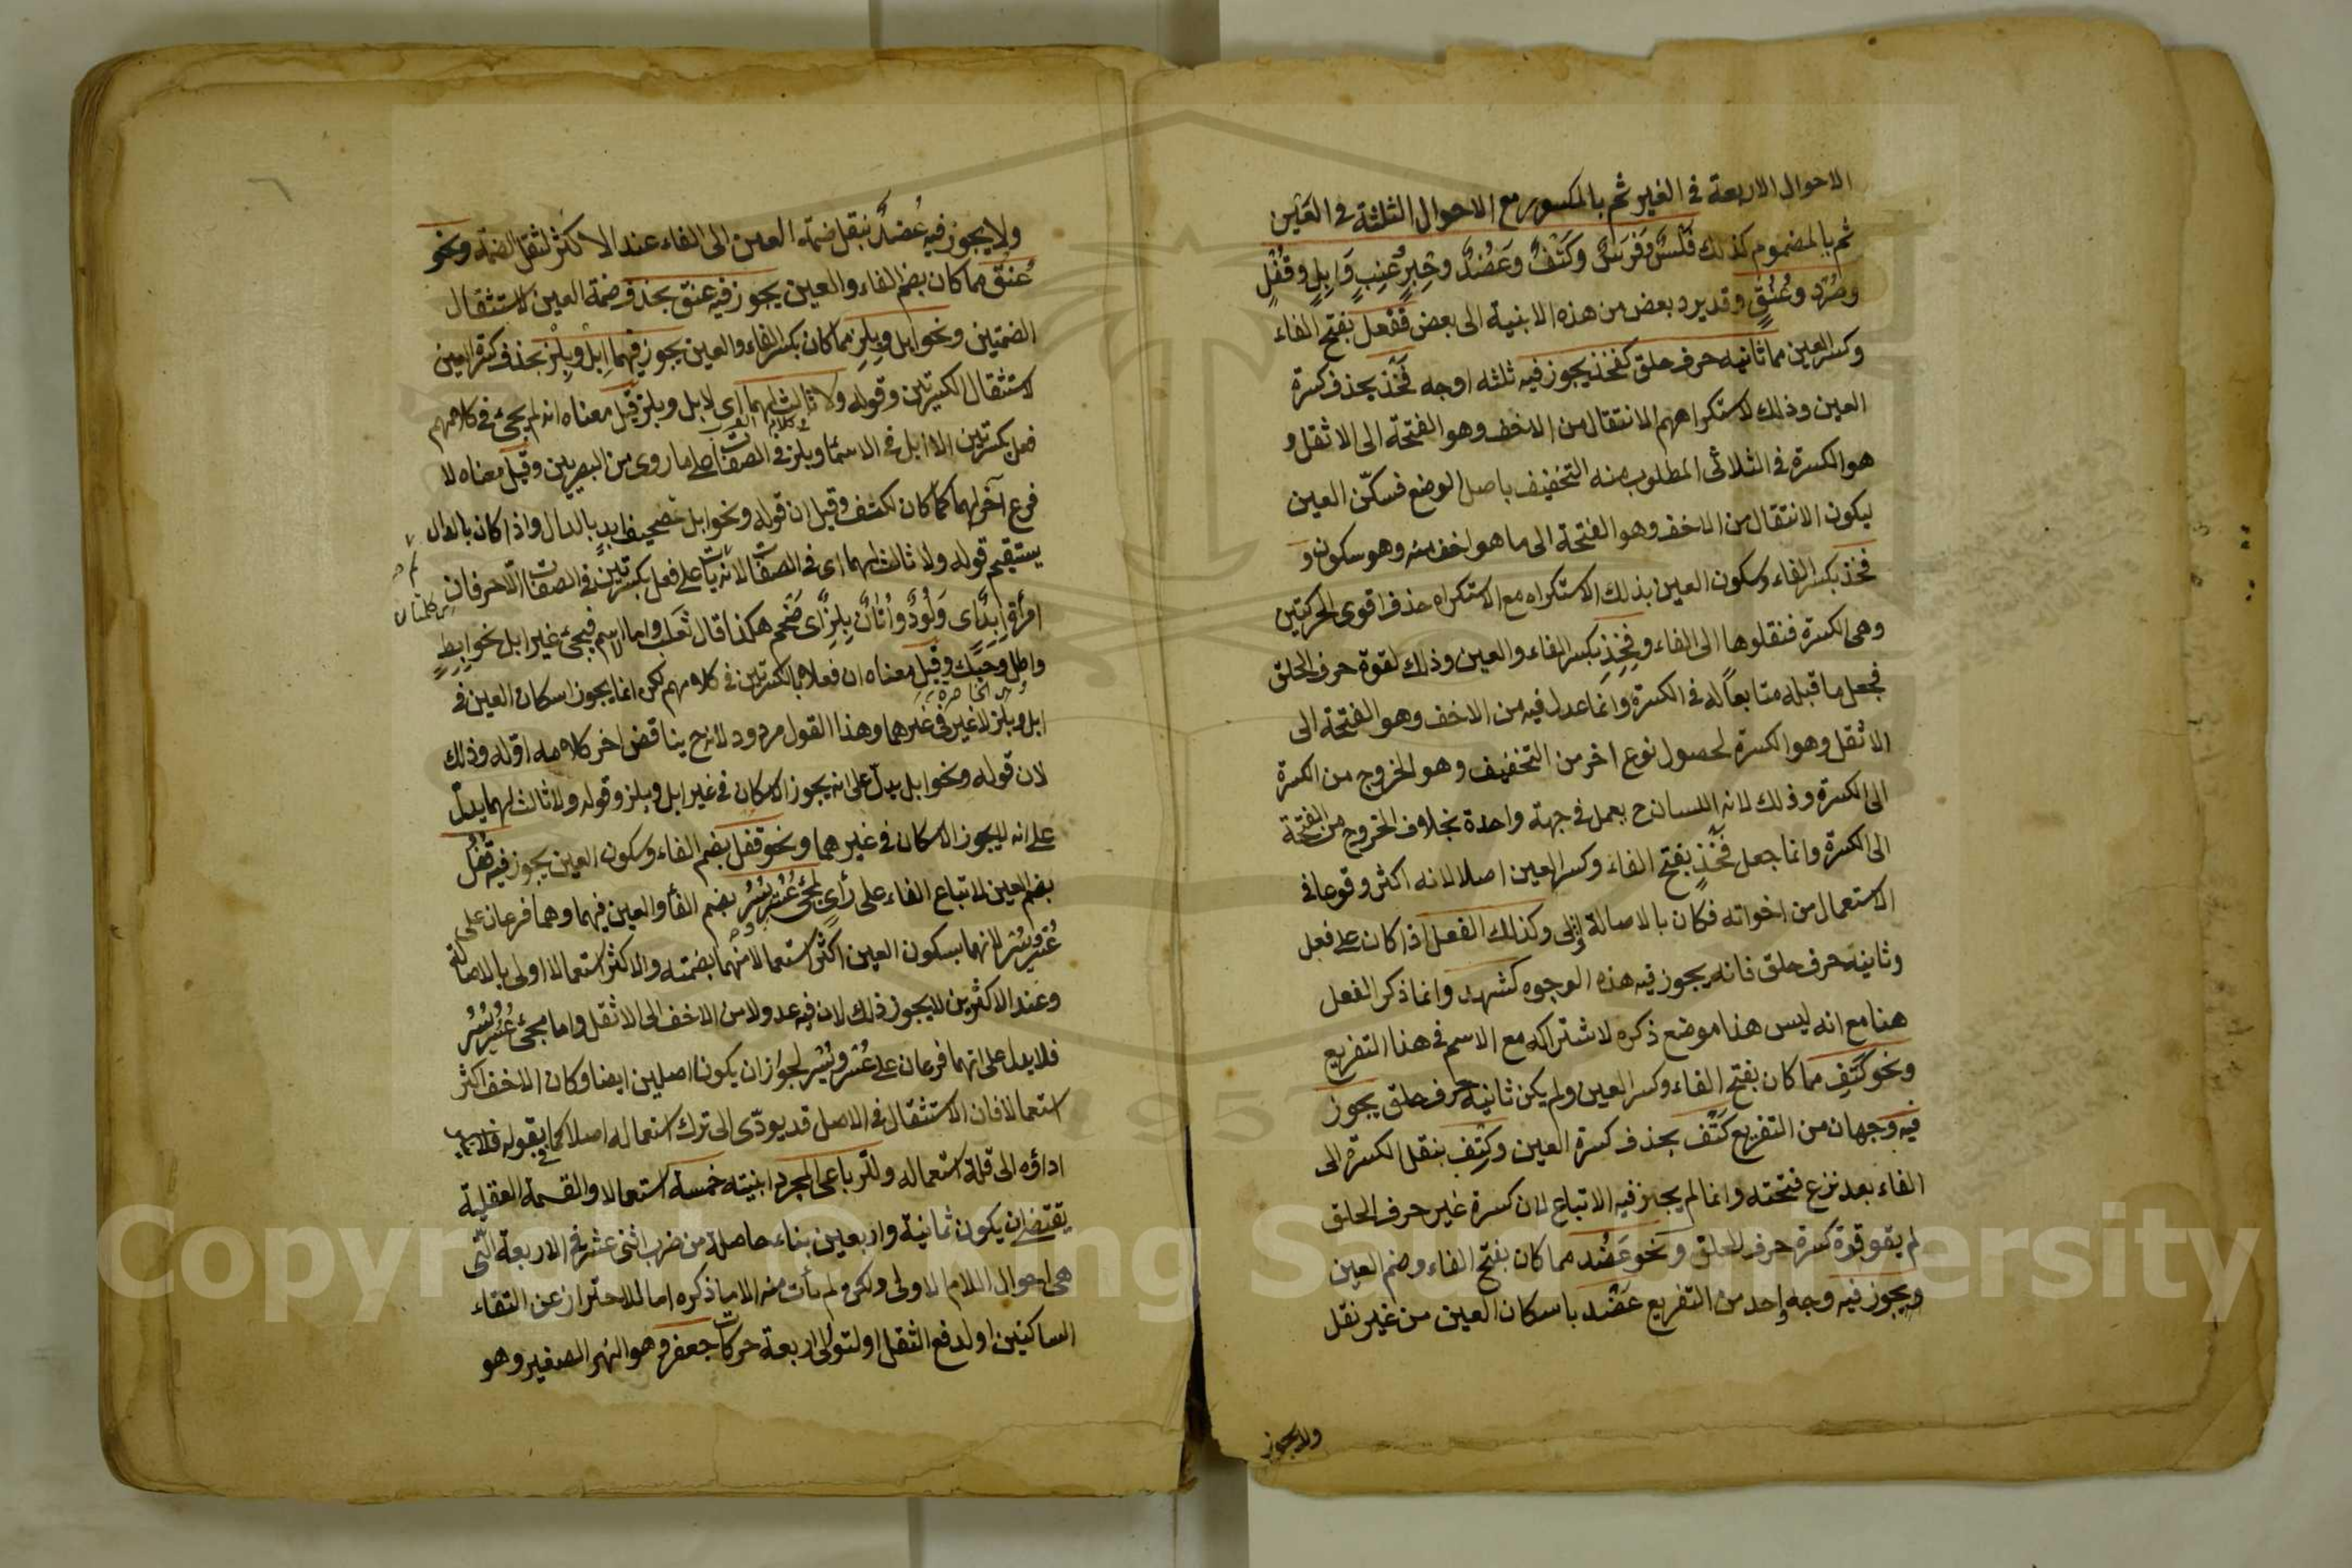 الاحوال الاربعة في الغير ثم بالمكسور مع الاحوال الثلثة في العين
ثم بالمضموم كذلك فَلْسٌ وفَرَسٌ وكَتِفٌ وعَضُدٌ وحِبْرٍ وعِنَبٍ وَاِبِلٍ وقُفْلٍ
وصُرَدٍ وعُنُقٍ وقد يرد بعض من هذه الابنية الى بعض ففعل بفتح الفاء
وكسر العين مما ثانيه حرف حلق كفخذ يجوز فيه ثلثه اوجه فَخْذ بحذف كسرة
العين وذلك لاستكراههم الانتقال من الاخف وهو الفتحة الى الاثقل و
هو الكسرة في الثلاثى المطلوب منه التخفيف باصل الوضع فسكّن العين
ليكون الانتقال من الاخف وهو الفتحة الى ما هو اخف منه وهو سكون و
فِخْذ بكسر الفاء وسكون العين بذلك الاستكراه مع الاستكراه حذف اقوى الحركتين
وهى الكسرة فنقلوها الى الفاء وفِخِذ بكسر الفاء والعين وذلك لقوة حرف الحلق
فجعل ما قبله متابعاً له في الكسرة وانما عدل فيه من الاخف وهو الفتحة الى
الاثقل وهو الكسرة لحصول نوع اخر من التخفيف وهو الخروج من الكسرة
الى الكسرة وذلك لانه اللسان ح يعمل في جهة واحدة بخلاف الخروج من الفتحة
الى الكسرة وانما جعل فَخِذ بفتح الفاء وكسر العين اصلا لانه اكثر وقوعا في
الاستعمال من اخواته فكان بالاصالة اولى وكذلك الفعل اذا كان على فعل
وثانيه حرف حلق فانه يجوز فيه هذه الوجوه كشهد وانما ذكر الفعل
هنا مع انه ليس هذا موضع ذكره لاشتراكه مع الاسم في هذا التفريع
ونحو كَتِفٍ مما كان بفتح الفاء وكسر العين ولم يكن ثانيه حرف حلق يجوز
فيه وجهان من التفريع كَتْف بحذف كسرة العين وكِتْف بنقل الكسرة الى
الفاء بعد نزع فتحته وانما لم يجز فيه الاتباع لان كسرة غير حرف الحلق
لم يقو قوة كسرة حرف الحلق ونحو عَضُد مما كان بفتح الفاء وضم العين
ويجوز فيه وجه واحد من التفريع عَضْد باسكان العين من غير نقل
ولا يجوز
ولا يجوز فيه عُضدٌ بنقل ضمة العين الى الفاء عند الاكثر لثقل الضمة ونحو
عُنُق مما كان بضم الفاء والعين يجوز فيه عنق بحذف ضمة العين لاستثقال
الضمتين ونحو ابل وبِلِز مما كان بكسر الفاء والعين يجوز فيهما اِبْل وبِلْز بحذف كسرة العين
لاستثقال الكسرتين وقوله ولا ثالث لهما اى لابل وبلز قيل معناه انه لم يجئ في كلامهم
فعل بكسرتين الا ابل في الاسماء وبلز في الصفات على ما روى من البصريين وقيل معناه لا
فرع آخر لهما كما كان لكتف وقيل ان قوله ونحو ابل تصحيف ابد بالدال واذا كان بالدال
يستقيم قوله ولا ثالث لهما اى في الصفات لانه لم يأت على فعل بكسرتين في الصفات الا حرفان
امرأة اِبِدٌ اى وَلُودٌ واَتَانٌ بِلِزٌ اى ضَخم هكذا قال ثعلب واما الاسم فيجئ غير ابل نحو اِبِط
واطل وحِبِك وقيل معناه ان فعلا بالكسرتين في كلامهم لكن انما يجوز اسكان العين في
ابل وبلز لا غير في غيرهما وهذا القول مردود لانه ح يناقض اخر كلامه اوّله وذلك
لان قوله ونحو ابل يدل على انه يجوز الاسكان في غير ابل وبلز وقوله ولا ثالث لهما يدل
على انه لا يجوز الاسكان في غيرهما ونحو قفل بضم الفاء وسكون العين يجوز فيه قُفُل
بضم العين لاتباع الفاء على رأى لمجئ عُسُر ويُسُر بضم الفاء والعين فيهما وهما فرعان على
عُسْر ويُسْر لانهما بسكون العين اكثر استعمالا منهما بضمته والاكثر استعمالا اولى بالاصالة
وعند الاكثرين لا يجوز ذلك لان فيه عدولا من الاخف الى الاثقل واما مجئ عُسُر ويُسُر
فلا يدل على انهما فرعان على عُسْر ويُسْر لجواز ان يكونا اصلين ايضا وكان الاخف اكثر
استعمالا فان الاستثقال في الاصل قد يودّى الى ترك استعماله اصلا كما في
اداؤه الى قلة استعماله وللرباعى المجرد ابنيته خمسة استعمالا والقسمة العقلية
يقتضى ان يكون ثمانية واربعين بناء حاصلة من ضرب اثنى عشر في الاربعة التى
هى احوال اللام الاولى ولكن لم يأت منه الا ما ذكره اما للاحتراز عن التقاء
الساكنين او لدفع الثقل او لتوالى اربعة حركات جعفر وهو النهر الصغير وهو
Copyright © King Saud University
1957